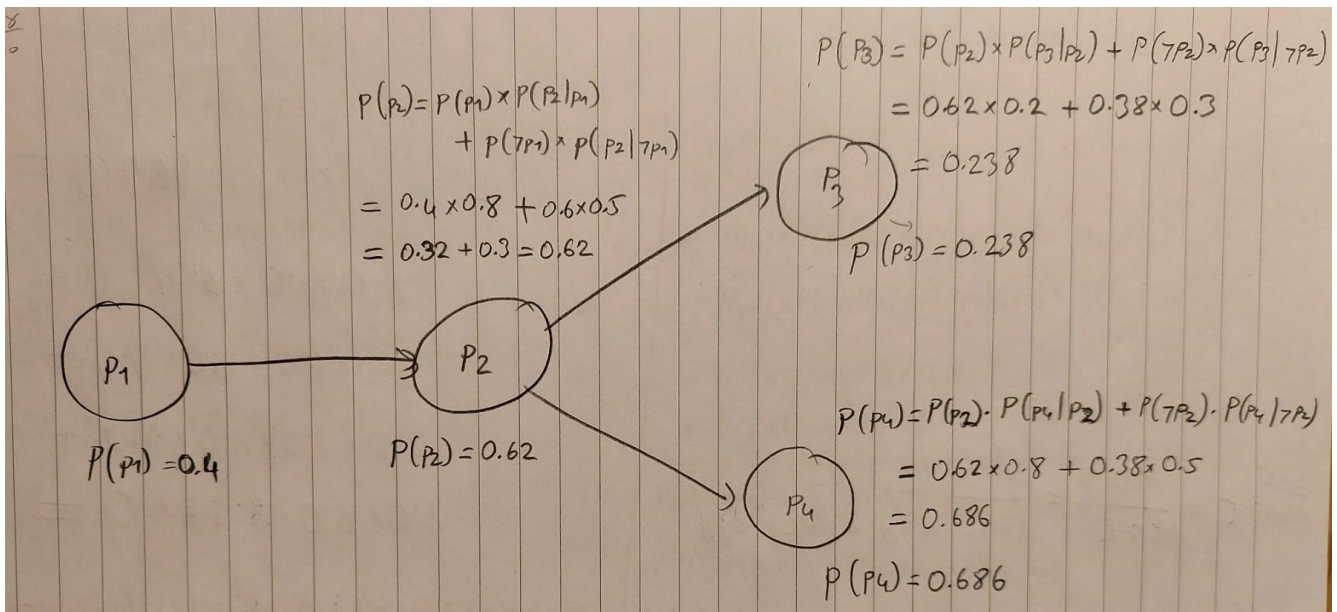 P(p2) = P(p1) × P(p2|p1)
+ P(¬p1) × P(p2|¬p1)
= 0.4 × 0.8 + 0.6 × 0.5
= 0.32 + 0.3 = 0.62
P(P3) = P(p2) × P(p3|p2) + P(¬p2) × P(p3|¬p2)
= 0.62 × 0.2 + 0.38 × 0.3
= 0.238
P3
P(p3) = 0.238
P1
P(p1) = 0.4
P2
P(p2) = 0.62
P(p4) = P(p2) · P(p4|p2) + P(¬p2) · P(p4|¬p2)
= 0.62 × 0.8 + 0.38 × 0.5
= 0.686
P4
P(p4) = 0.686